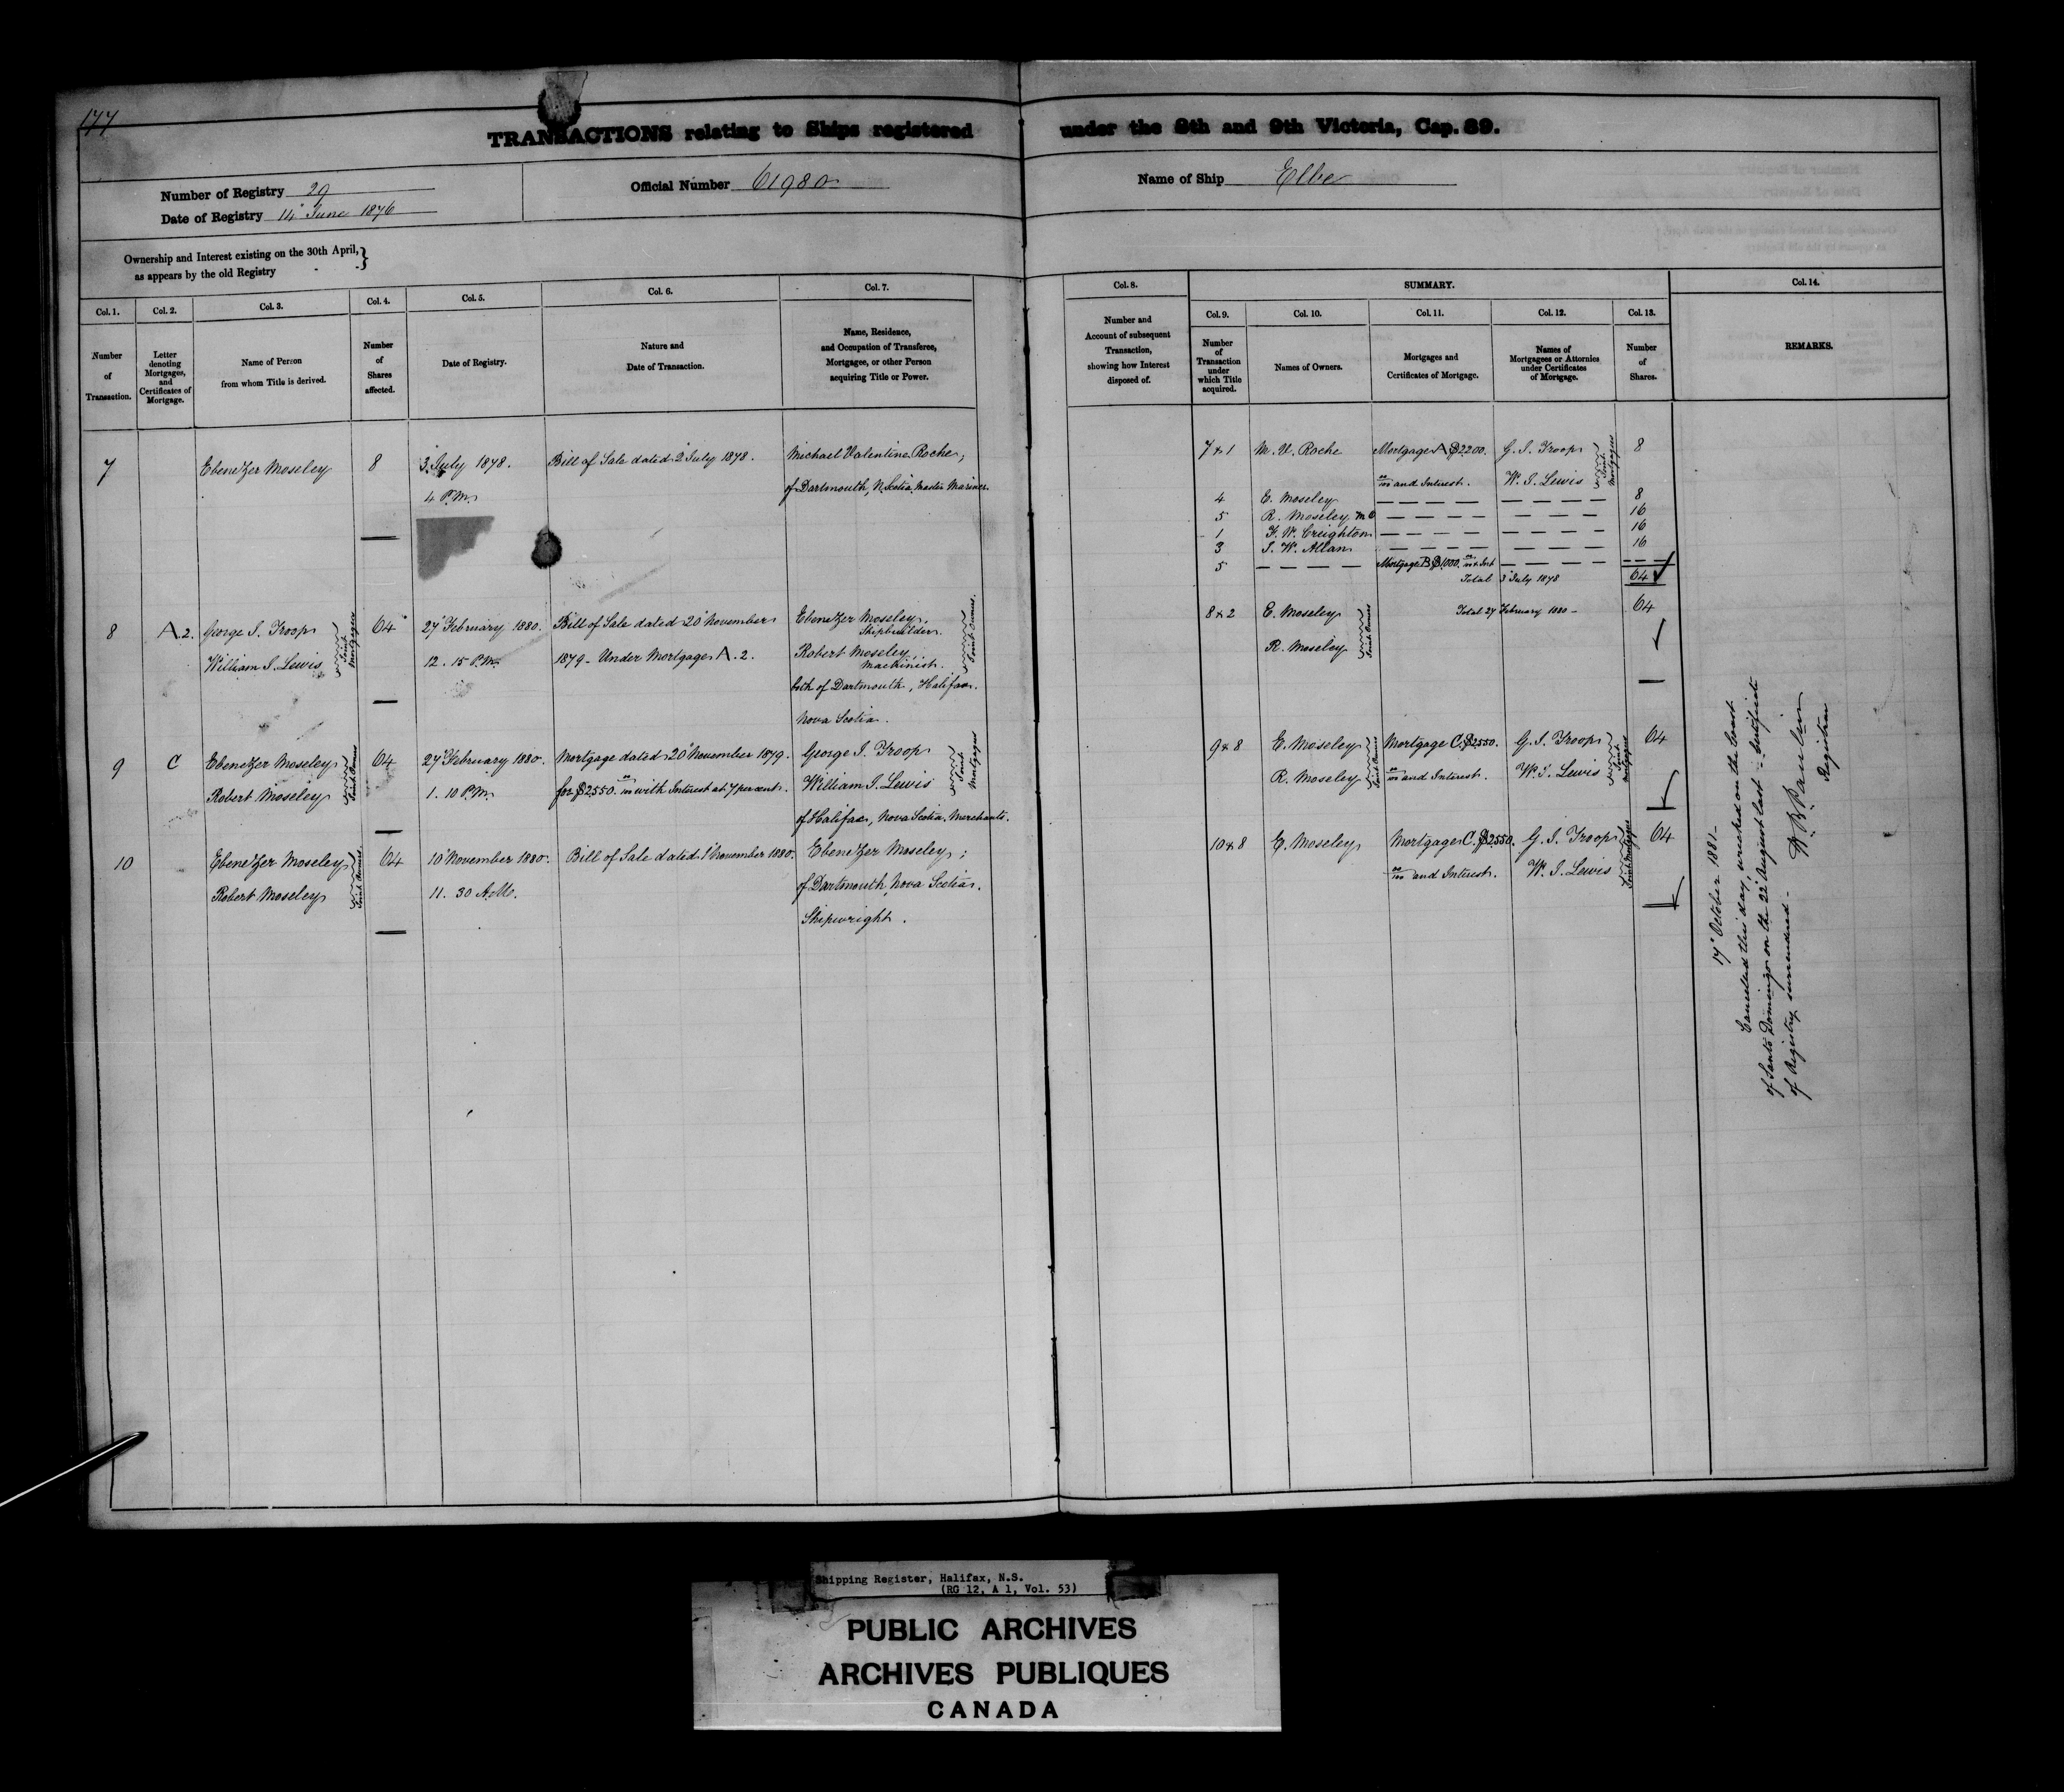 177
TRANSACTIONS relating to Ships registered under the 8th and 9th Victoria, Cap. 89.
Number of Registry 29
Date of Registry 14 June 1876
Official Number 61980
Name of Ship Elbe
Ownership and Interest existing on the 30th April, }
as appears by the old Registry
Col. 1. Col. 2. Col. 3. Col. 4. Col. 5. Col. 6. Col. 7.
Number of Transaction.
Letter denoting Mortgages, and Certificates of Mortgage.
Name of Person from whom Title is derived.
Number of Shares affected.
Date of Registry.
Nature and Date of Transaction.
Name, Residence, and Occupation of Transferee, Mortgagee, or other Person acquiring Title or Power.
7 Ebenezer Moseley 8 3 July 1878. Bill of Sale dated 2 July 1878. Michael Valentine Roche,
4 P.M. of Dartmouth, N. Scotia, Master Mariner.
8 A.2. George J. Troop 64 27 February 1880. Bill of Sale dated 20 November Ebenezer Moseley,
Shipbuilder.
William J. Lewis Joint Mortgagees 12.15 P.M. 1879 - Under Mortgage A.2. Robert Moseley,
Machinist. Joint Owners.
both of Dartmouth, Halifax.
Nova Scotia.
9 C Ebenezer Moseley 64 27 February 1880. Mortgage dated 20 November 1879. George J. Troop
Robert Moseley Joint Owners 1.10 P.M. for $2550. 00/100 with Interest at 7 per cent. William J. Lewis Joint Mortgagees
of Halifax, Nova Scotia. Merchants.
10 Ebenezer Moseley 64 10 November 1880. Bill of Sale dated 1 November 1880. Ebenezer Moseley;
Robert Moseley Joint Owners 11.30 A.M. of Dartmouth, Nova Scotia.
Shipwright.
Col. 8. SUMMARY. Col. 14.
Col. 9. Col. 10. Col. 11. Col. 12. Col. 13.
Number and Account of subsequent Transaction, showing how Interest disposed of.
Number of Transaction under which Title acquired.
Names of Owners.
Mortgages and Certificates of Mortgage.
Names of Mortgagees or Attornies under Certificates of Mortgage.
Number of Shares.
REMARKS.
7 & 1 M. V. Roche Mortgage A $2200. G. J. Troop 8
00/100 and Interest. W. J. Lewis Joint Mortgagees
4 E. Moseley 8
5 R. Moseley 16
1 F. W. Creighton 16
3 J. W. Allan 16
5 Mortgage B $1000. 00/100 & Int
Total 3 July 1878 64
8 & 2 E. Moseley Total 27 February 1880 - 64
R. Moseley Joint Owners
9 & 8 E. Moseley Mortgage C. $2550. G. J. Troop 64
R. Moseley Joint Owners 00/100 and Interest. W. J. Lewis Joint Mortgagees
10 & 8 E. Moseley Mortgage C. $2550. G. J. Troop 64
00/100 and Interest. W. J. Lewis Joint Mortgagees
17 October 1881 -
Cancelled this day, wrecked on the Coast
of Santo Domingo on the 22 August last - Certificate
of Registry surrendered -
Registrar
Shipping Register, Halifax, N.S.
(RG 12, A 1, Vol. 53)
PUBLIC ARCHIVES
ARCHIVES PUBLIQUES
CANADA